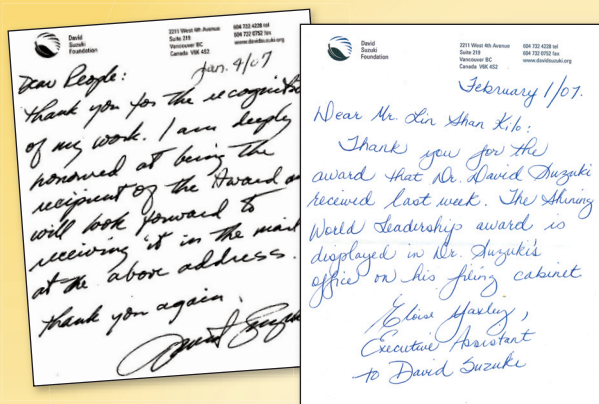 David
Suzuki
Foundation
2211 West 4th Avenue
Suite 219
Vancouver BC
Canada V6K 4S2
604 732 4228 tel
604 732 0752 fax
www.davidsuzuki.org
Jan. 4/07
Dear People:
Thank you for the recognition
of my work. I am deeply
honoured at being the
recipient of the Award and
will look forward to
receiving it in the mail
at the above address.
Thank you again,
David
Suzuki
Foundation
2211 West 4th Avenue
Suite 219
Vancouver BC
Canada V6K 4S2
604 732 4228 tel
604 732 0752 fax
www.davidsuzuki.org
February 1/07.
Dear Mr. Lin Shan Kilo:
Thank you for the
award that Dr. David Suzuki
received last week. The Shining
World Leadership award is
displayed in Dr. Suzuki's
office on his filing cabinet
Eloise Yaxley,
Executive Assistant
to David Suzuki